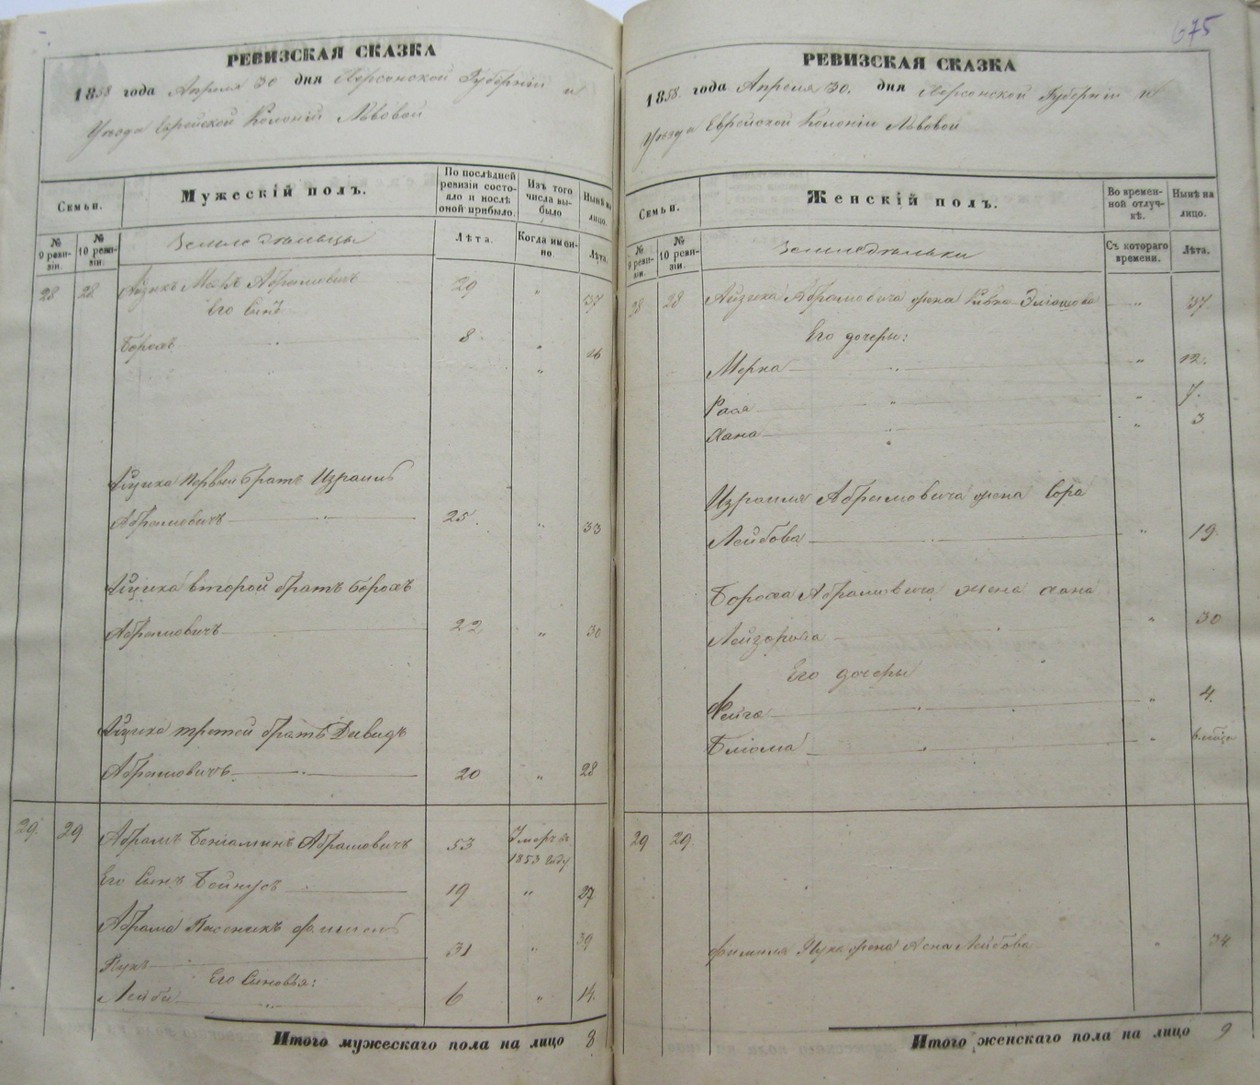 675
РЕВИЗСКАЯ СКАЗКА
1858 года Апреля 30 дня Херсонской Губерніи и
Уезда Еврейской Колоніи Львовой
Семьи.
Мужескій полъ.
По последней ревизіи состояло и после оной прибыло.
Изъ того числа выбыло
Ныне на лицо.
№ 9 ревизіи.
№ 10 ревизіи.
Земледельцы
Лета.
Когда именно
Лета.
28 28 Абрамовичъ 29 " 37
Его Сынъ
Борохъ 8 " 16
"
Айзика Первый братъ Израиль
Абрамовичъ 25. " 33
Айзика второй братъ Борохъ
Абрамовичъ 22 " 30
Айзика третей братъ Давидъ
Абрамовичъ 20 " 28
29 29 Абрамъ Беніаминъ Абрамовичъ 53 Умеръ въ 1853 году
Его Сынъ 19 " 27
Абрама
31 " 39
Его Сыновья:
Лейба 6 " 14.
Итого мужескаго пола на лицо 8
РЕВИЗСКАЯ СКАЗКА
1858 года Апреля 30. дня Херсонской Губерніи и
Уезда Еврейской Колоніи Львовой
Семьи.
Женскій полъ.
Во временной отлучкѣ.
Ныне на лицо.
№ 9 ревизіи.
№ 10 ревизіи.
Земледельки
Съ котораго времени.
Лета.
28 28 Айзика Абрамовича жена Ривка " 37
Его дочеры:
Мерка " 12.
Рася " 7.
Хана " 3
Израиля Абрамовича жена Сора
Лейбова 19
Бороха Абрамовича жена Хана
Лейзерова " 30
Его дочеры
Фейга " 4.
Блюма "
29 29
жена Лейбова " 34
Итого женскаго пола на лицо 9